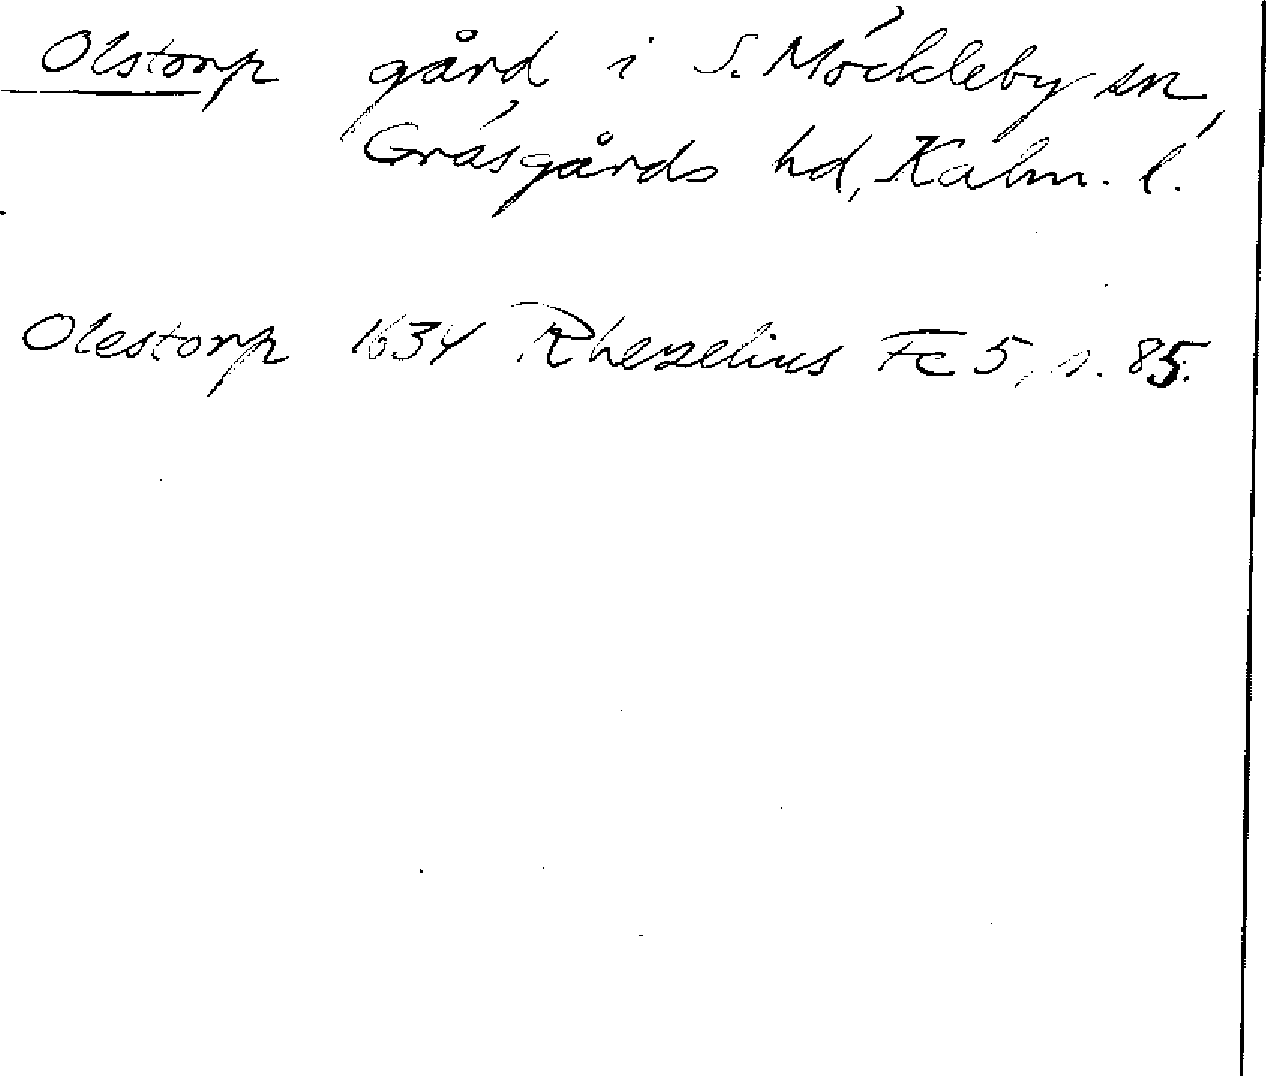 Olstorp gård i S. Möckleby sn,
Gräsgårds hd, Kalm. l.
Olestorp 1634 Rhezelius Fc 5, s. 85.